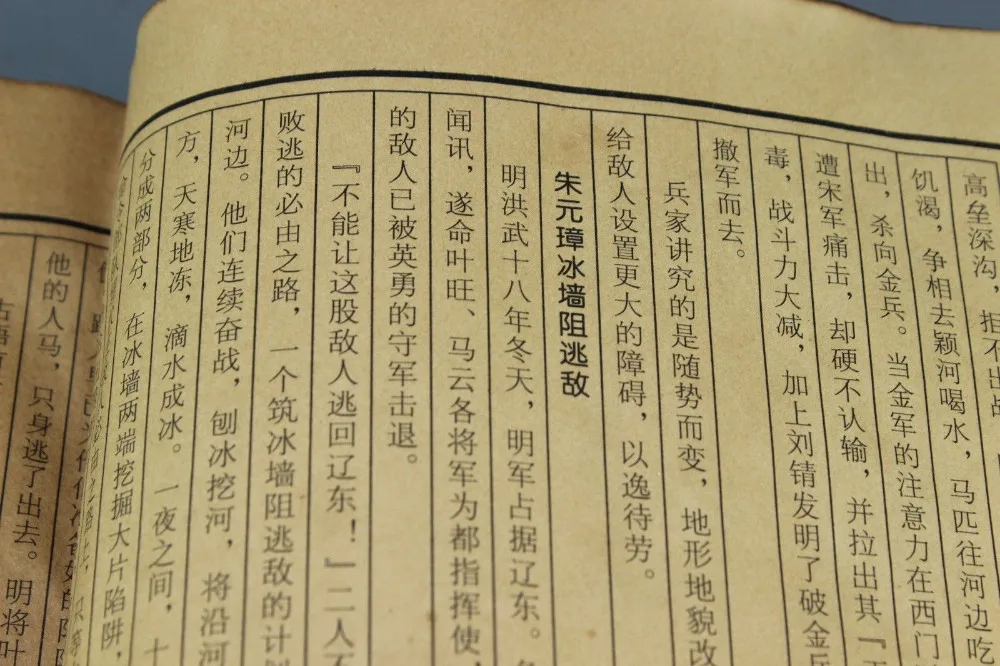 高垒深沟，拒不出战
饥渴，争相去颖河喝水，马匹往河边吃
出，杀向金兵。当金军的注意力在西门
遭宋军痛击，却硬不认输，并拉出其『
毒，战斗力大减，加上刘锜发明了破金兵
撤军而去。
兵家讲究的是随势而变，地形地貌改
给敌人设置更大的障碍，以逸待劳。
朱元璋冰墙阻逃敌
明洪武十八年冬天，明军占据辽东。
闻讯，遂命叶旺、马云各将军为都指挥使，
的敌人已被英勇的守军击退。
『不能让这股敌人逃回辽东！』二人不
败逃的必由之路，一个筑冰墙阻逃敌的计划
河边。他们连续奋战，刨冰挖河，将沿河
方，天寒地冻，滴水成冰。一夜之间，十
分成两部分，在冰墙两端挖掘大片陷阱，
他的人马，只身逃了出去。明将叶
古语